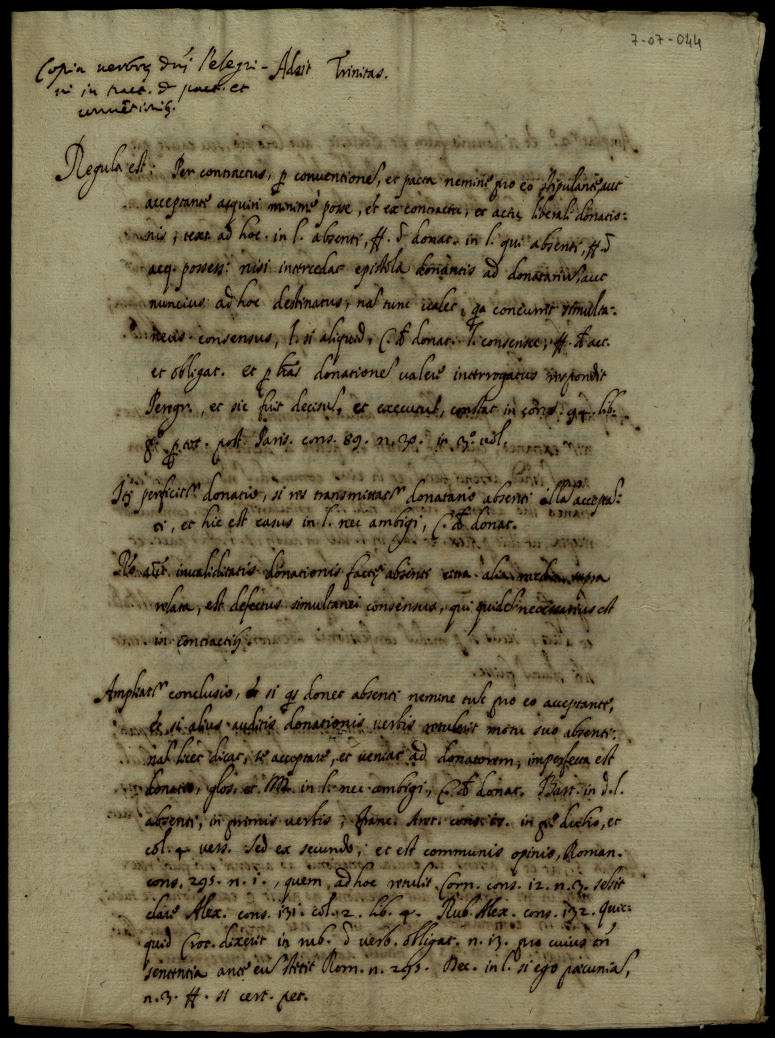 7-07-044
Copia verborum dni Pelegri- Adsit Trinitas.
ni in tract. d pact. et
conventionib.
Regula est: Per contractus, p conventiones, et pacta nemine pro eo stipulante aut
acceptante acquiri minime posse, et ex contractu, et actu liberali donatio:
nis, text. ad hoc. in l. absenti, ff. d donat. in l. qui absenti, ff. d
acq. possess: nisi intercedat epistola donantis ad donatarium, aut
nuncius ad hoc destinatus, nal tunc valet, qa concurrit simulta:
neus consensus, l. si aliquid, C. d donat. l. consensu, ff. d act.
et obligat. et p has donationes valere interrogatus respondit
Peregr., et sic fuit decisum, et executum, constat in cons. 94. lib.
p. tot. post Paris. cons. 89. n. 30. in 3.º vol.
Itq perficitr donatio, si res transmittatr donatario absenti illa accepta:
ti, et hic est casus in l. nec ambigi, C. d donat.
Ro aut invaliditatis donationis factę absenti citra alia media supra
relata, est defectus simultanei consensus, qui quidem necessarius est
in contractib.
Ampliatr conclusio, et si qs donet absenti nemine tuc pro eo acceptante,
et si alius auditis donationis verbis retulerit motu suo absenti:
nal licet dicat, se acceptare, et veniat ad donatorem, imperfecta est
donatio, glos. et in l. nec ambigi, C. d donat. Bart. in d. l.
absenti, in primis verbis, Franc. Aret. cons. in p. dubio, et
col. 4. vers. Sed ex secundo, et est communis opinio, Roman.
cons. 295. n. 1., quem ad hoc retulit Corn. cons. 12. n. 3. sentit
clare Alex. cons. 131. col. 2. lib. 4. Rub. Alex. cons. 132. quic:
quid Crot. dixerit in rub. d verb. obligat. n. 13. pro cuius tn
sententia ante eum stetit Rom. n. 295. Dec. in l. si ego pecuniam,
n. 3. ff. si cert. pet.